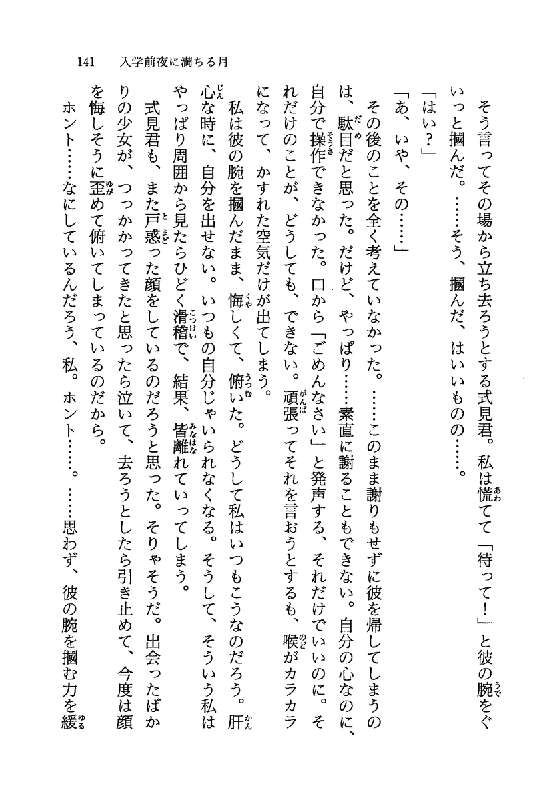 141　入学前夜に満ちる月
　そう言ってその場から立ち去ろうとする式見君。私は慌てて「待って！」と彼の腕をぐ
いっと掴んだ。……そう、掴んだ、はいいものの……。
「はい？」
「あ、いや、その……」
　その後のことを全く考えていなかった。……このまま謝りもせずに彼を帰してしまうの
は、駄目だと思った。だけど、やっぱり……素直に謝ることもできない。自分の心なのに、
自分で操作できなかった。口から「ごめんなさい」と発声する、それだけでいいのに。そ
れだけのことが、どうしても、できない。頑張ってそれを言おうとするも、喉がカラカラ
になって、かすれた空気だけが出てしまう。
　私は彼の腕を掴んだまま、悔しくて、俯いた。どうして私はいつもこうなのだろう。肝
心な時に、自分を出せない。いつもの自分じゃいられなくなる。そうして、そういう私は
やっぱり周囲から見たらひどく滑稽で、結果、皆離れていってしまう。
　式見君も、また戸惑った顔をしているのだろうと思った。そりゃそうだ。出会ったばか
りの少女が、つっかかってきたと思ったら泣いて、去ろうとしたら引き止めて、今度は顔
を悔しそうに歪めて俯いてしまっているのだから。
　ホント……なにしているんだろう、私。ホント……。……思わず、彼の腕を掴む力を緩